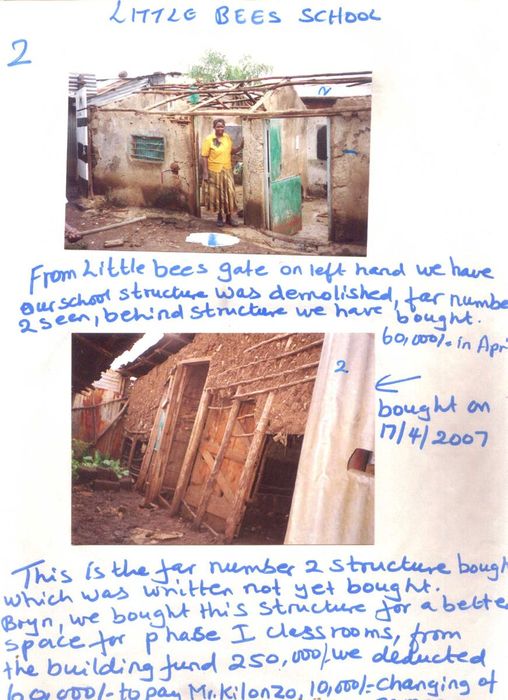 LITTLE BEES SCHOOL
2
2
From Little bees gate on left hand we have
our school structure was demolished, far number
2 seen, behind structure we have bought.
60,000/- in Apri
2
bought on
17/4/2007
This is the far number 2 structure bough
which was written not yet bought.
Bryn, we bought this structure for a bette
space for phase I classrooms, from
the building fund 250,000/- we deducted
60,000/- to pay Mr. Kilonzo, 10,000/- changing of